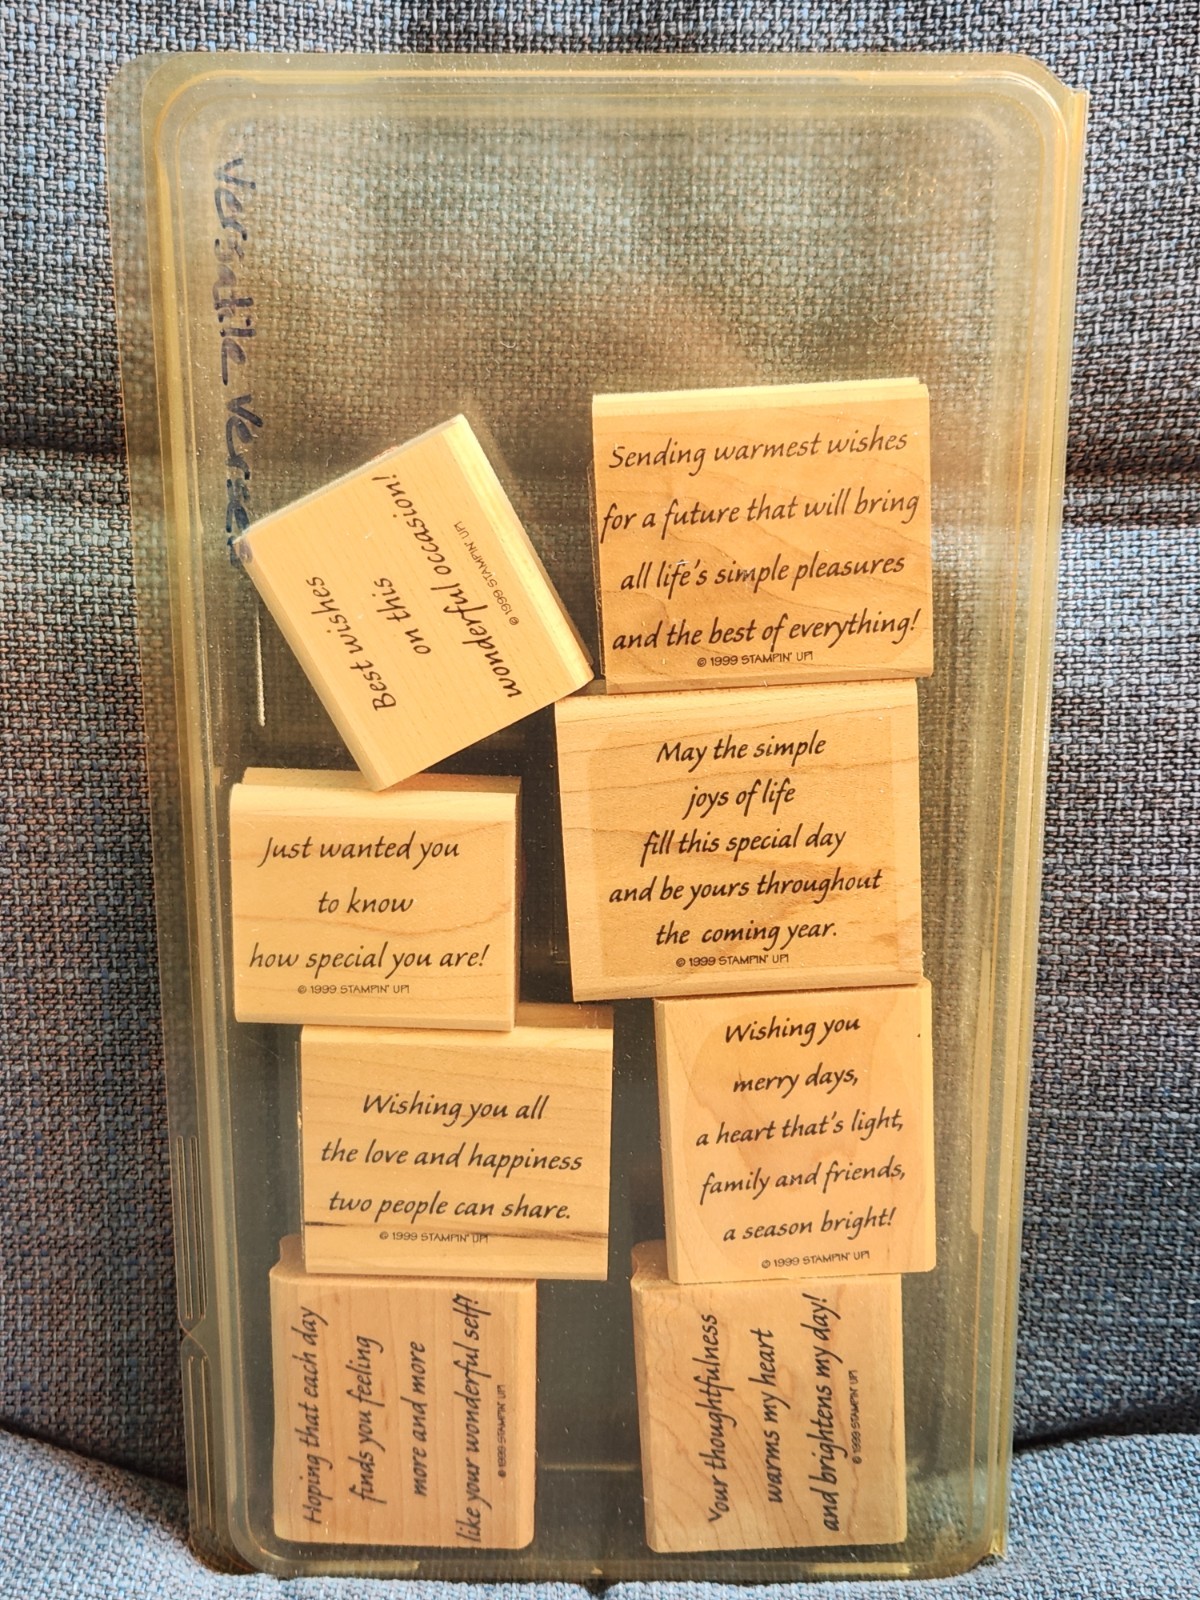 Versatile Verses
Best wishes
on this
wonderful occasion!
© 1999 STAMPIN' UP!
Sending warmest wishes
for a future that will bring
all life's simple pleasures
and the best of everything!
© 1999 STAMPIN' UP!
Just wanted you
to know
how special you are!
© 1999 STAMPIN' UP!
May the simple
joys of life
fill this special day
and be yours throughout
the coming year.
© 1999 STAMPIN' UP!
Wishing you all
the love and happiness
two people can share.
© 1999 STAMPIN' UP!
Wishing you
merry days,
a heart that's light,
family and friends,
a season bright!
© 1999 STAMPIN' UP!
Hoping that each day
finds you feeling
more and more
like your wonderful self!
© 1999 STAMPIN' UP!
Your thoughtfulness
warms my heart
and brightens my day!
© 1999 STAMPIN' UP!